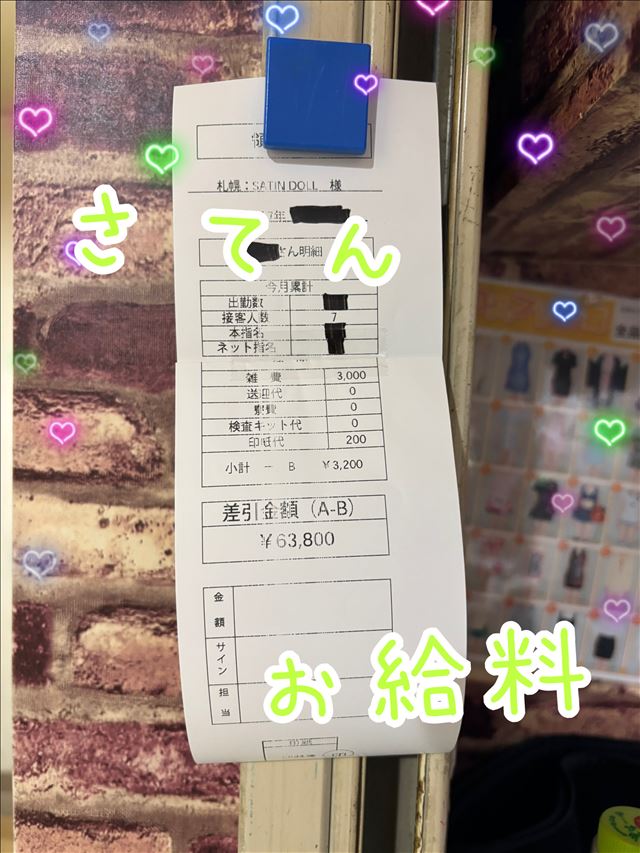 領
札幌：SATIN DOLL 様
年
さてん
さん明細
今月累計
出勤数
接客人数 7
本指名
ネット指名
雑 費 3,000
送迎代 0
寮費 0
検査キット代 0
印紙代 200
小計 － B ￥3,200
差引金額（A-B）
￥63,800
金額
サイン
担当
お給料